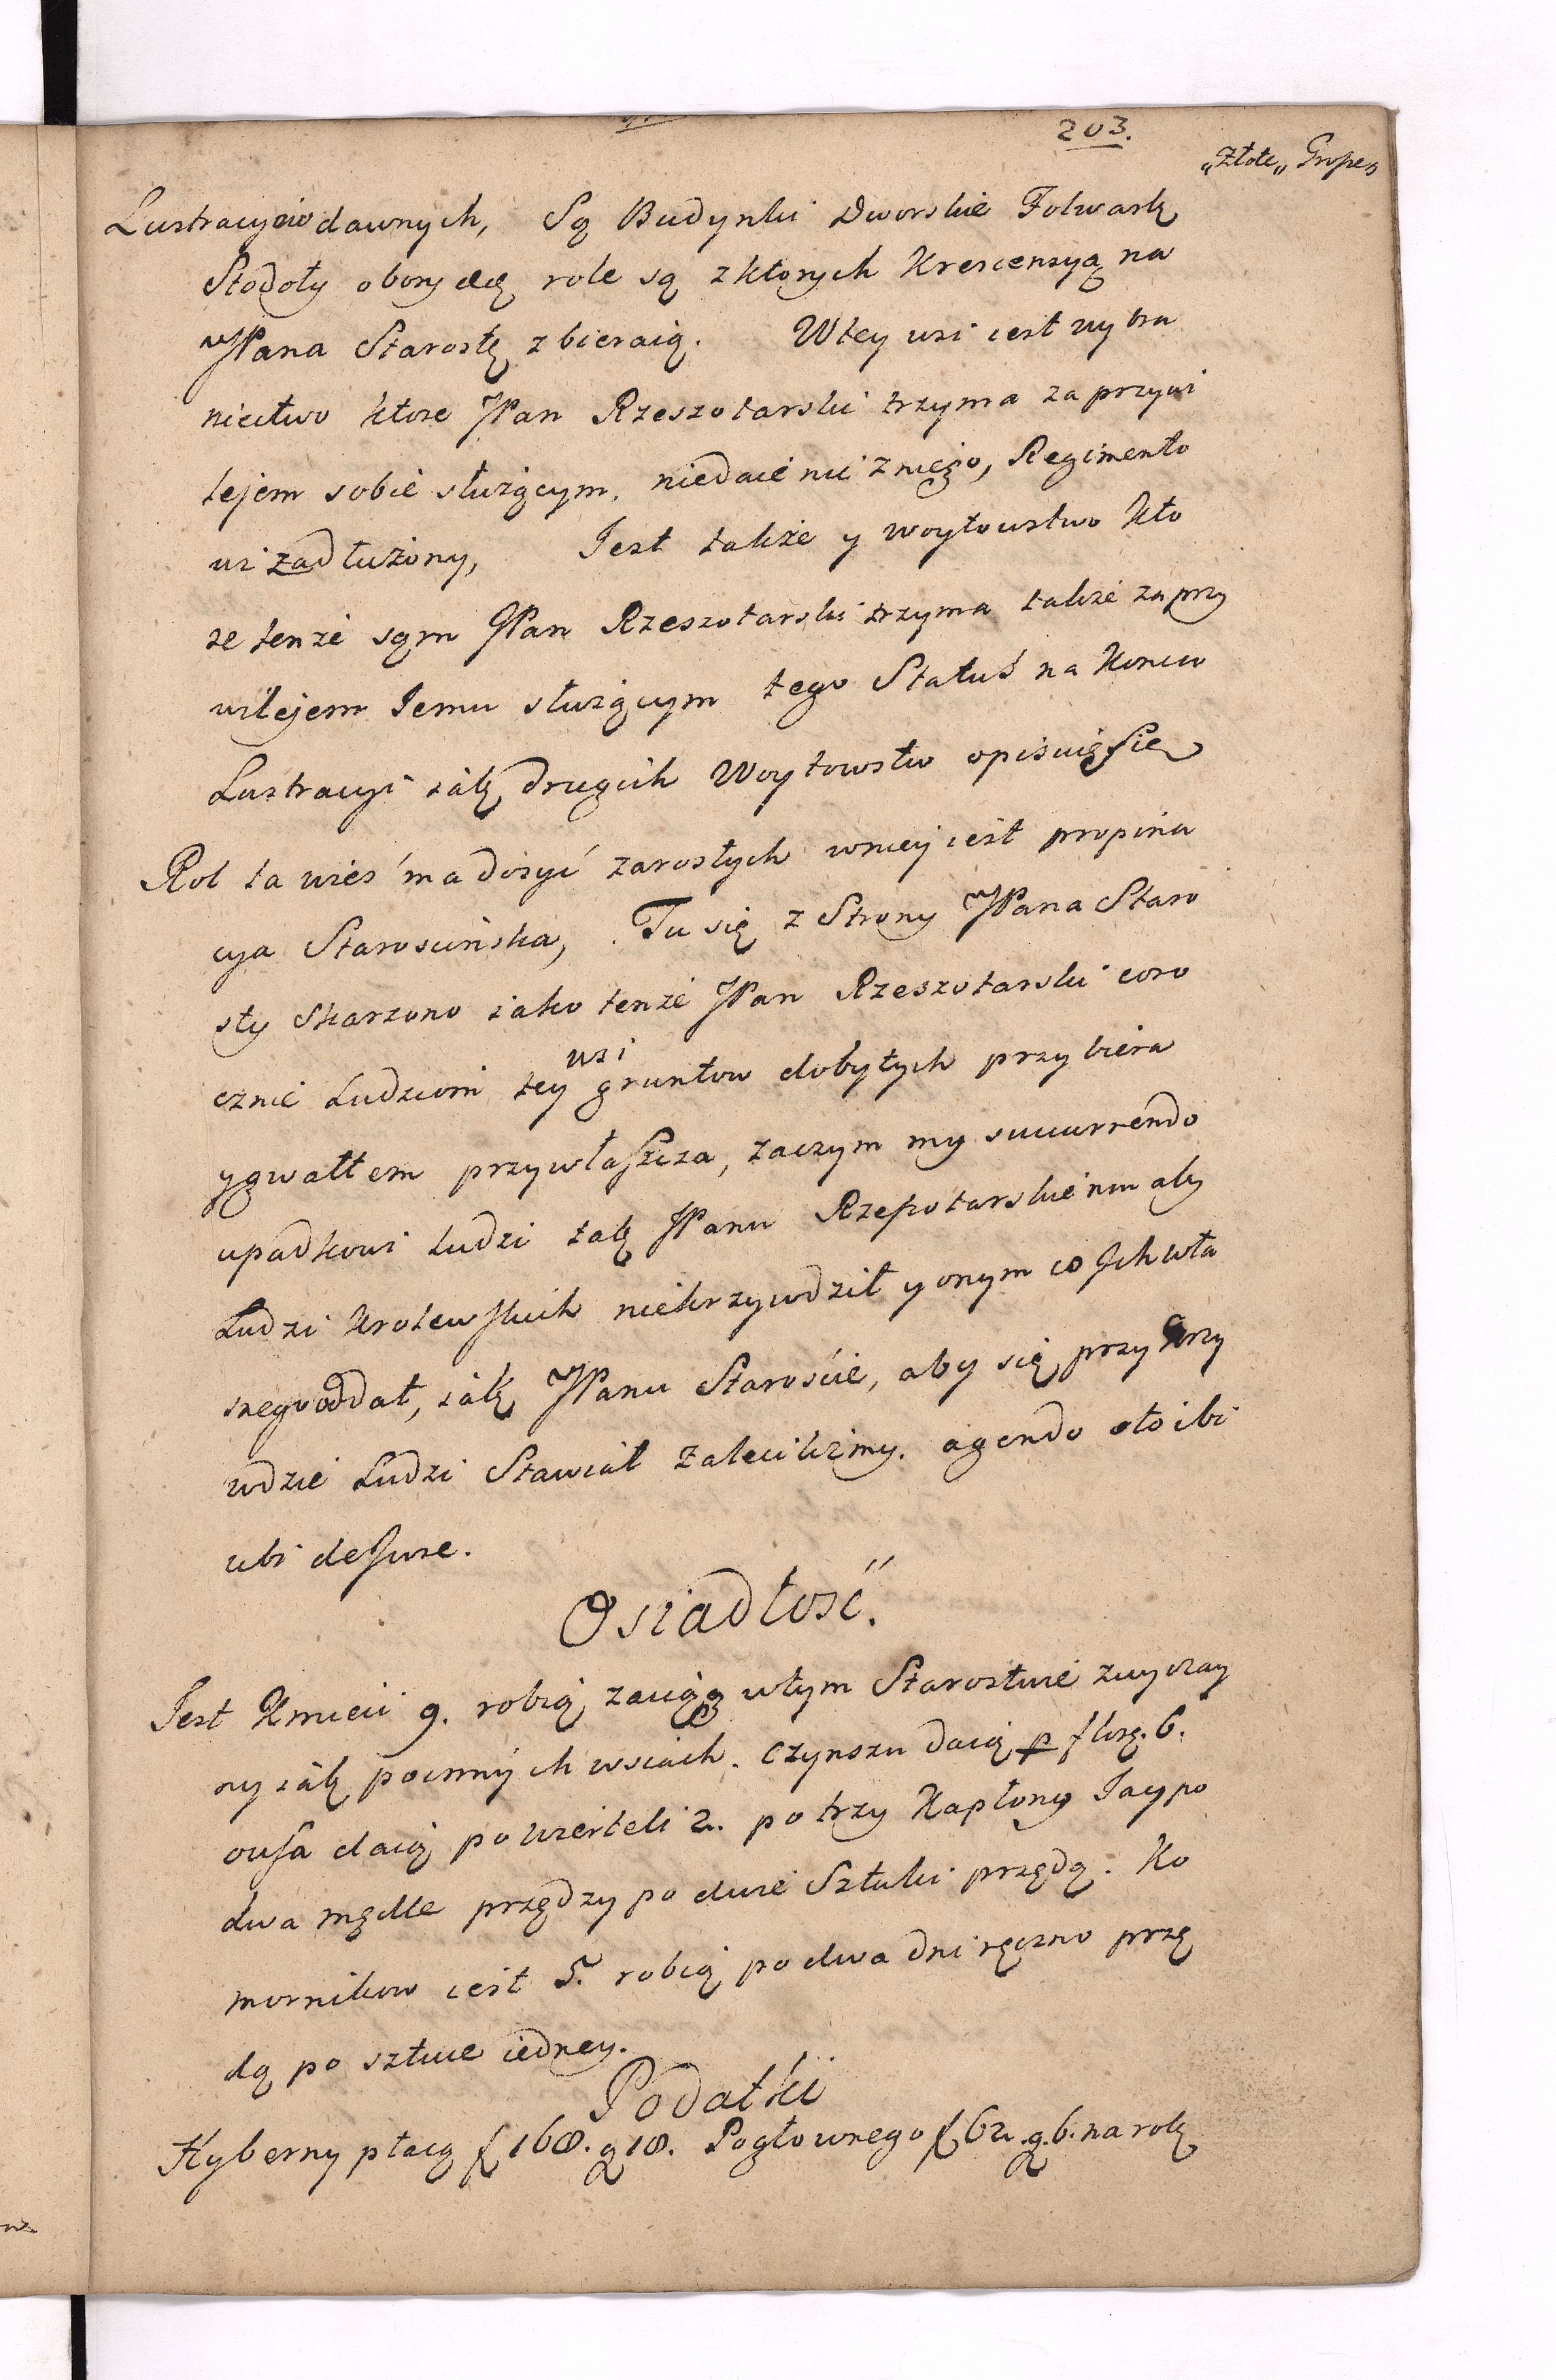 203.
„Złote„ Groszes
Lustracyiow dawnych, Są Budynki Dworskie Folwark
Stodoły obory etc role są z ktorych Krescensyą na
JPana Starostę zbieraią. W tey wsi iest wybra
niectwo ktore JPan Rzeszotarski trzyma za przywi
lejem sobie słuzącym, niedaie nic z niego, Regimento
wi zadłużony, Jest także y woytowstwo kto
re tenże sąm JPan Rzeszotarski trzyma także za przy
wilejem Jemu służącym tego Status na końcu
Lustracyi iak drugich Woytowstw opisuię się
Rol ta wieś ma dosyć zarosłych w niey iest propina
cya Staroscińska, Tu się z Strony JPana Staro
sty skarzono iako tenże JPan Rzeszotarski coro
cznie Ludziom tey wsi gruntow dobytych przybiera
y gwałtem przywłaszcza, zaczym my succurrendo
upadkowi ludzi tak JPanu Rzeszotarskiemu aby
Ludzi krolewskich niekrzywdził y onym co Ich wła
snego oddał, iak JPanu Staroście, aby się przy krzy
wdzie Ludzi Stawiał zaleciliśmy. agendo oto ibi
ubi de Jure.
Osiadłość.
Jest Kmieci 9. robią zaciąg w tym Starostwie zwyczay
ny iak po innych wsiach. Czynszu daią p flor. 6.
owsa daią po wierteli 2. po trzy Kapłony Jay po
dwa mędle przędzy po dwie Sztuki przędą. Ko
mornikow iest 5. robią po dwa dni ręczno przę
dą po sztuce iedney.
Podatki
Hyberny płacą f 168. g 18. Pogłownego f 62. g. 6. na rok